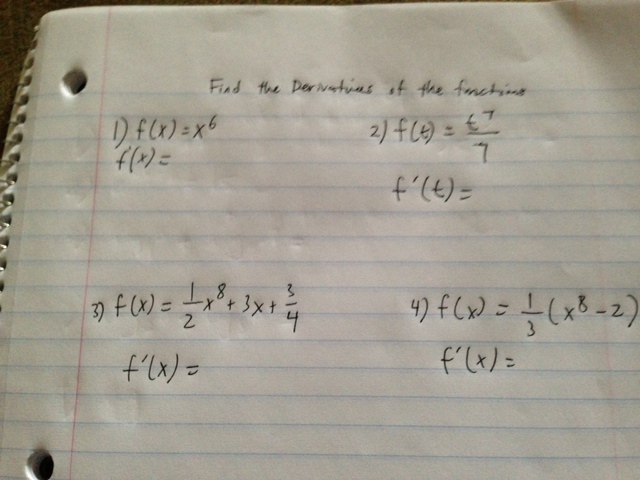 Find the Derivatives of the functions
1) f(x) = x⁶
f'(x) =
2) f(t) = t⁷/7
f'(t) =
3) f(x) = 1/2 x⁸ + 3x + 3/4
f'(x) =
4) f(x) = 1/3 (x⁸ - 2)
f'(x) =